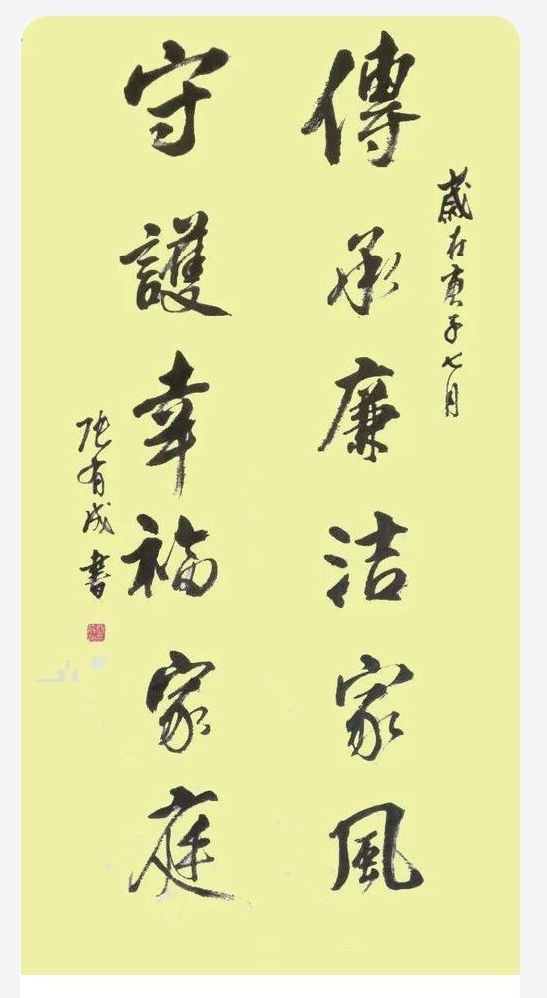 歲在庚子七月
傳承廉洁家風
守護幸福家庭
陆有成書